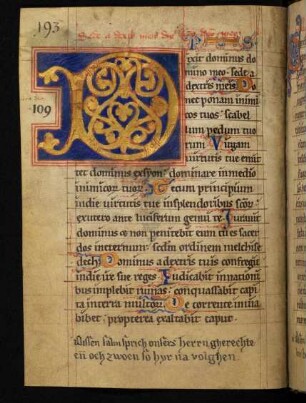 193
109
ixit dominus do
mino meo. sede a
dextris meis. Do
nec ponam inimi
cos tuos. scabel
lum pedum tuo
rum. Virgam
virtutis tue emit
tet dominus ex syon. dominare in medio
inimicorum tuorum. Tecum principium
in die virtutis tue in splendoribus
ex utero ante luciferum genui te. Iuravit
dominus et non penitebit eum tu es sacer
dos in eternum. secundum ordinem melchise
dech. Dominus a dextris tuis confregit
in die ire sue reges. Iudicabit in nationi
bus implebit ruinas. conquassabit capi
ta in terra multorum. De torrente in via
bibet. propterea exaltabit caput.
Dissen salm sprich onsers herren gherechte